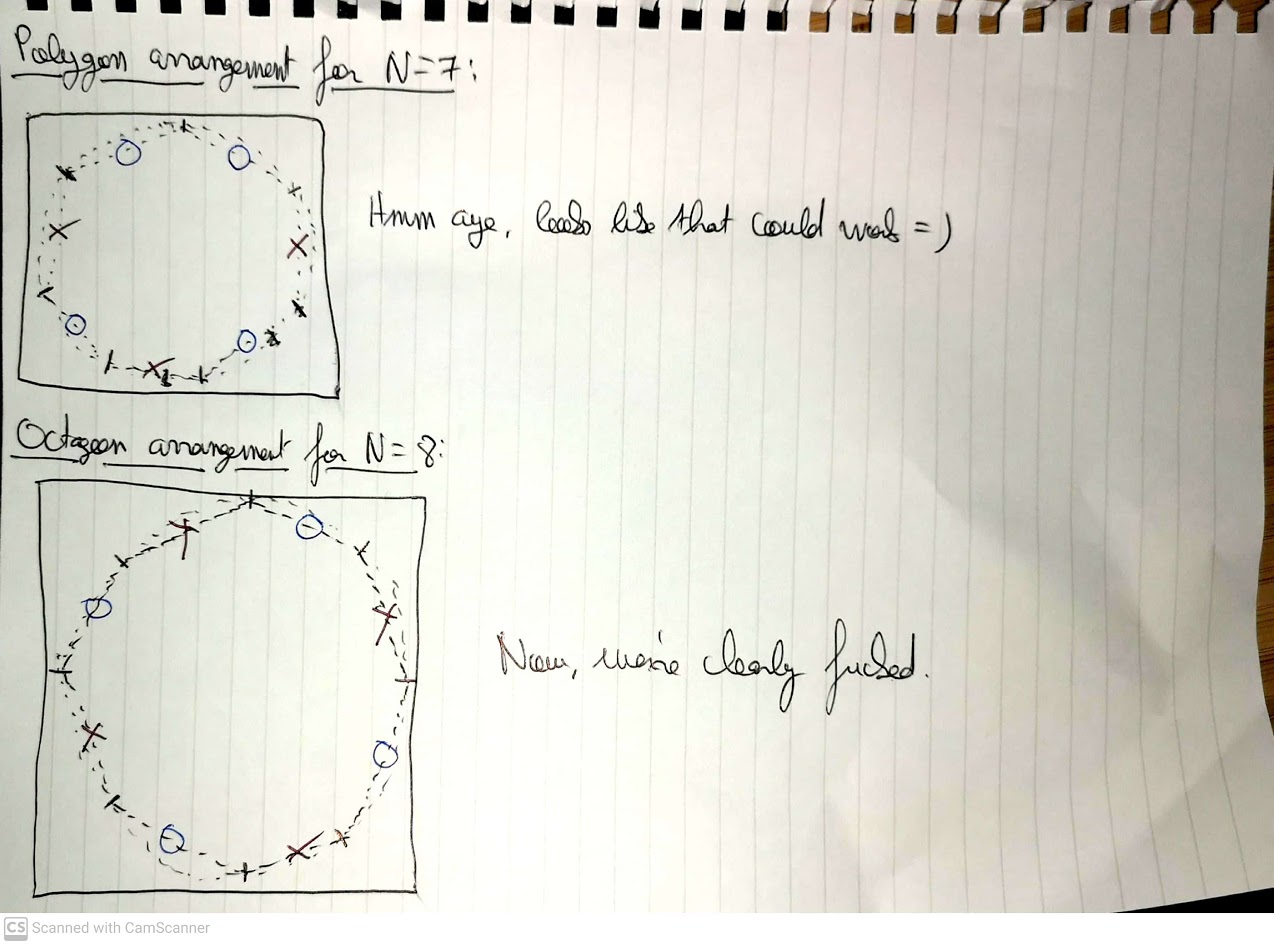 Polygon arrangement for N=7:
Hmm aye, looks like that could work =)
Octagon arrangement for N=8:
Now, we're clearly fucked.
CS Scanned with CamScanner